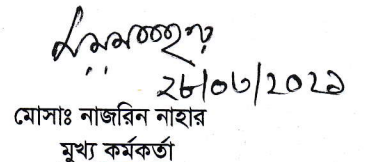 ২৮/০৬/২০২১
মোসাঃ নাজরিন নাহার
মুখ্য কর্মকর্তা